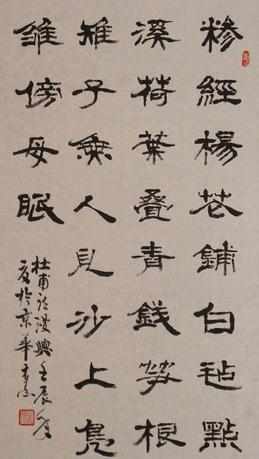 糝經楊花鋪白毡點
溪荷葉叠青錢笋根
雉子無人見沙上鳧
雛傍母眠
杜甫詩漫興壬辰
夏於京華